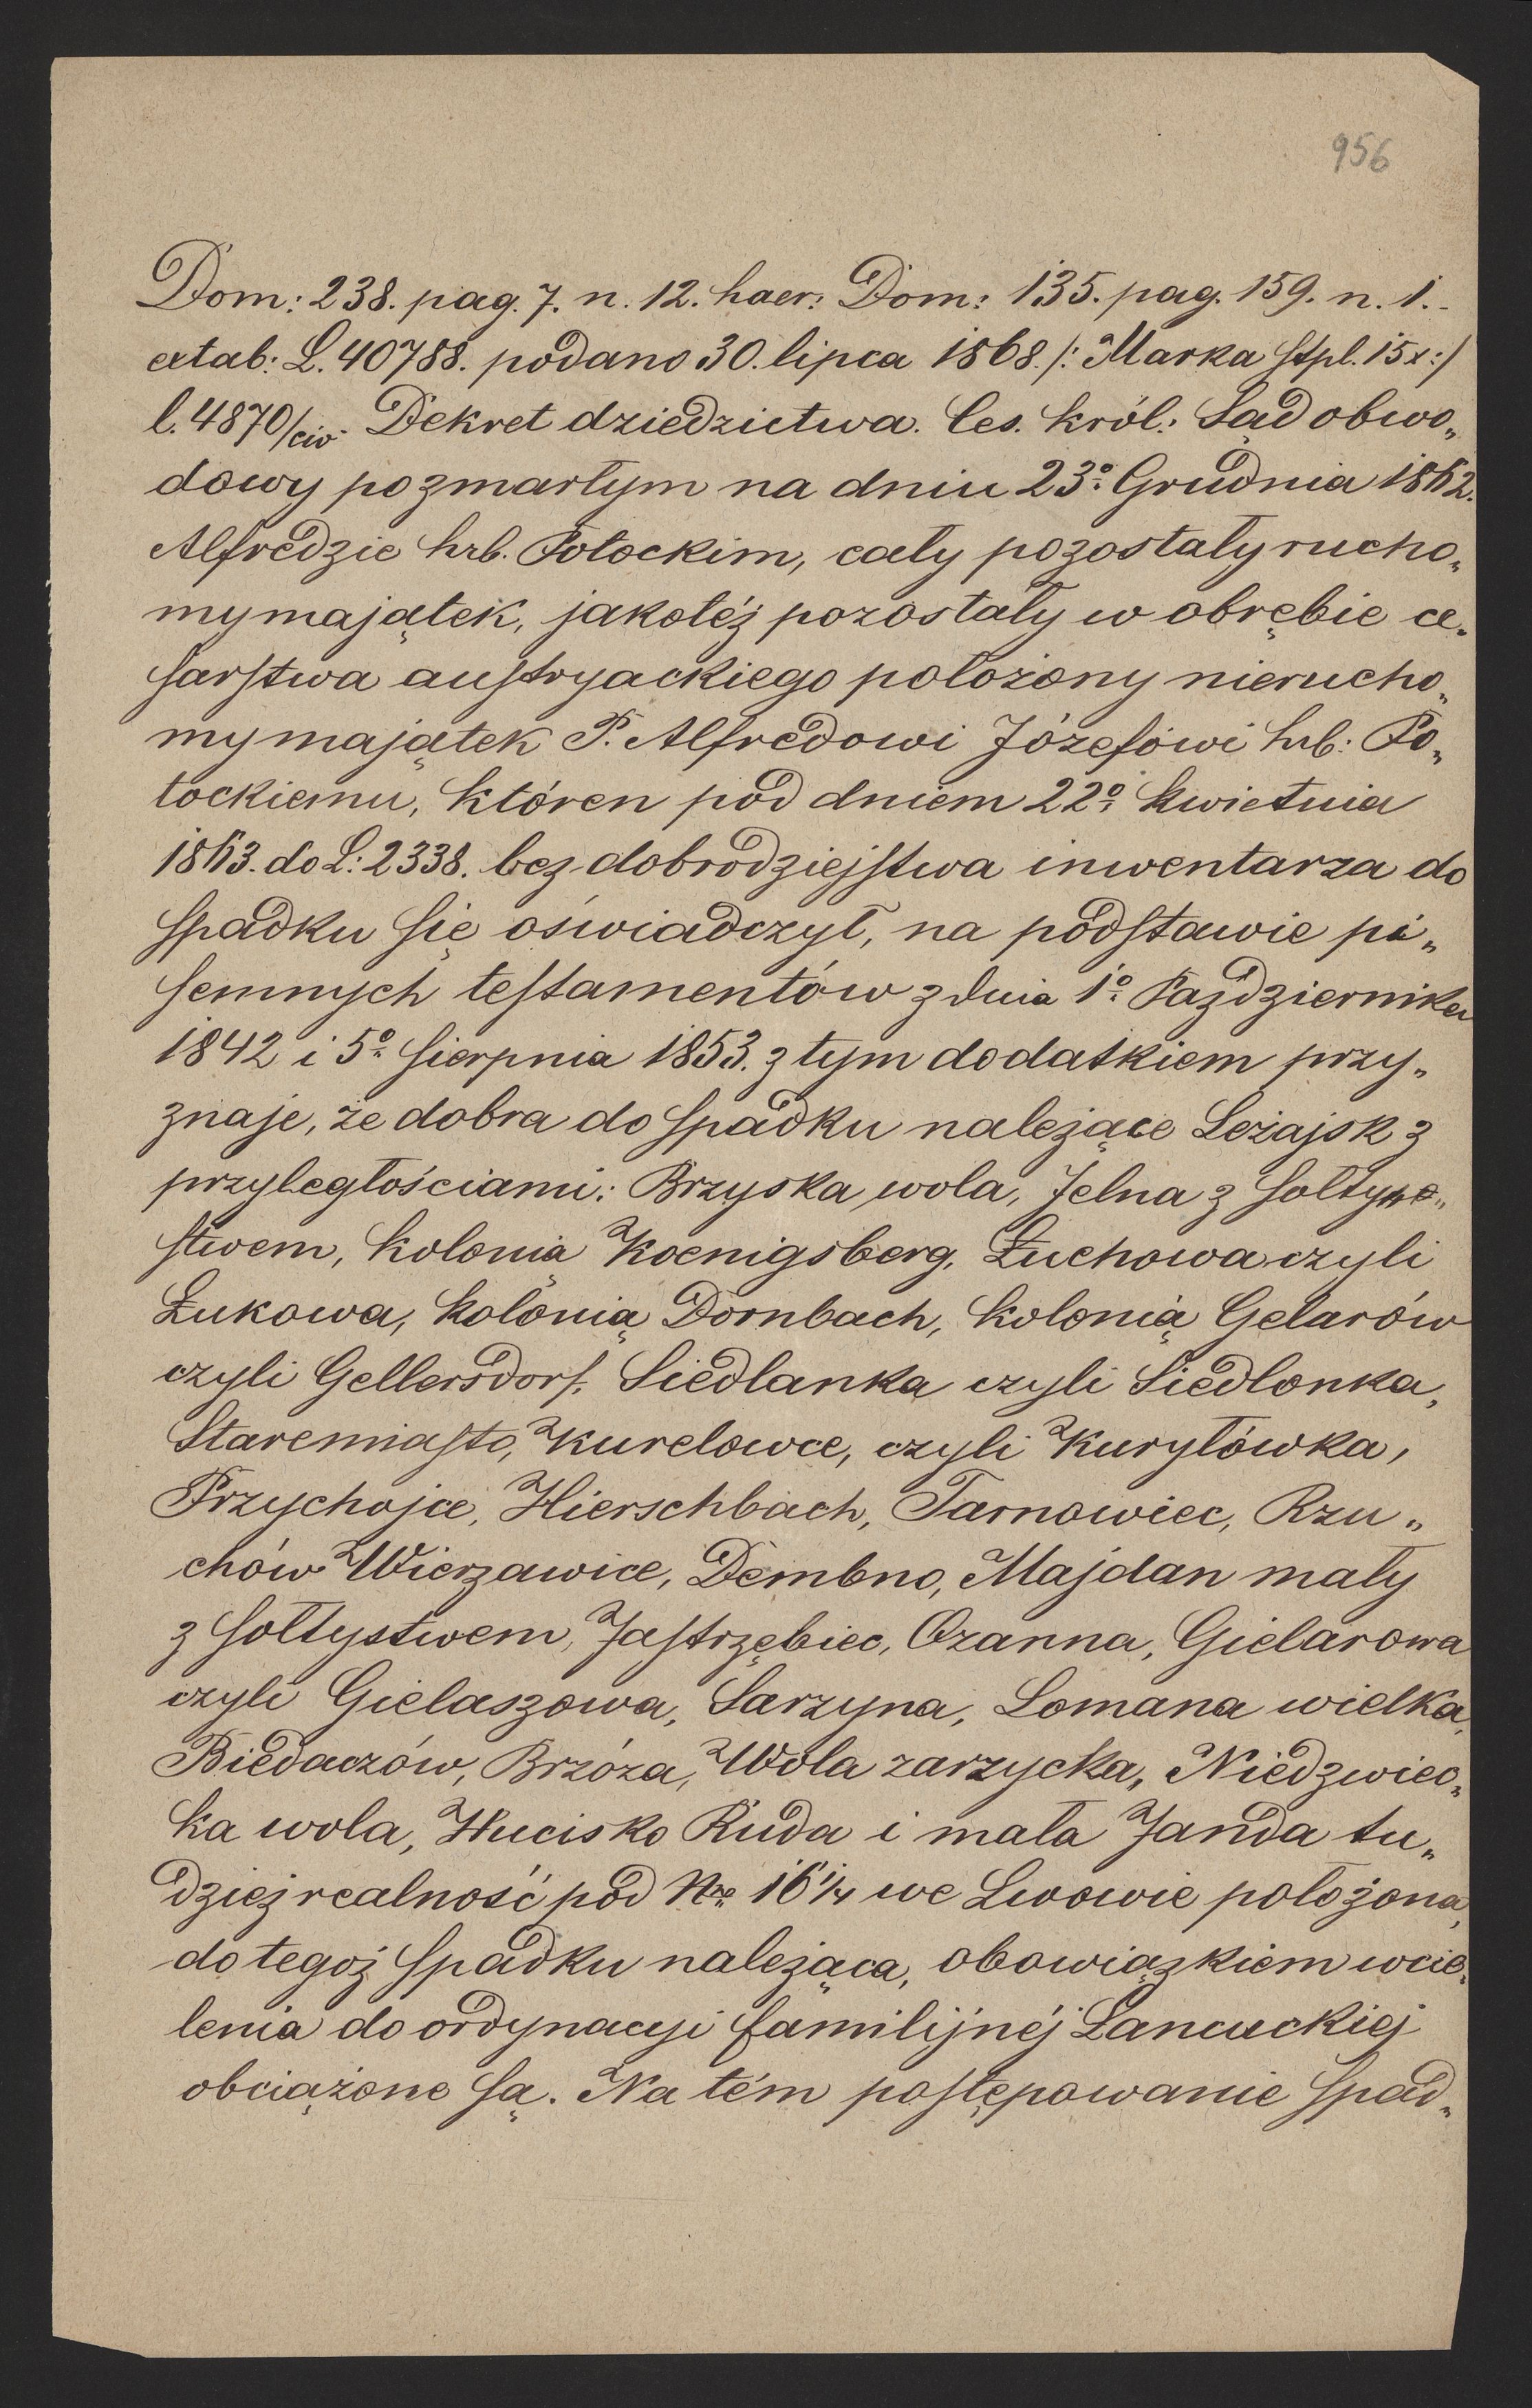 956
Dom: 238. pag. 7. n. 12. haer: Dom: 135. pag. 159. n. 1.
extab: L. 40788. podano 30. lipca 1868. /: Marka stpl. 15x :/
l. 4870/civ. Dekret dziedzictwa. Ces. król: Sąd obwo„
dowy po zmarłym na dniu 23º Grudnia 1862.
Alfredzie hrb. Potockim, cały pozostały rucho„
my majątek, jakoteż pozostały w obrębie ce„
sarstwa austryackiego położony nierucho„
my majątek P. Alfredowi Józefowi hrb: Po„
tockiemu, któren pod dniem 22º kwietnia
1863. do L: 2338. bez dobrodziejstwa inwentarza do
spadku się oświadczył, na podstawie pi„
semnych testamentów z dnia 1º Października
1842 i 5º sierpnia 1853. z tym dodatkiem przy„
znaje, że dobra do spadku należące Leżajsk z
przyległościami: Brzyska wola, Jelna z sołtyso„
stwem, kolonią Koenigsberg, Łuchowa czyli
Łukowa, kolonią Dornbach, kolonią Gelarów
czyli Gellersdorf, Siedlanka czyli Siedlonka,
Staremiasto, Kurelowce, czyli Kuryłówka,
Przychojce, Hierschbach, Tarnowiec, Rzu„
chów Wierzawice, Dembno, Majdan mały
z sołtystwem, Jastrzębiec, Ozanna, Gielarowa
czyli Gielaszowa, Sarzyna, Łomana wielka,
Biedaczów, Brzóza, Wola zarzycka, Niedzwiec„
ka wola, Hucisko Ruda i mała Janda tu„
dzież realność pod Nro 16 1/4 we Lwowie położona,
do tegoż spadku należąca, obowiązkiem wcie„
lenia do ordynacyi familijnéj Łancuckiej
obciążone są. Na tém postępowanie spad„